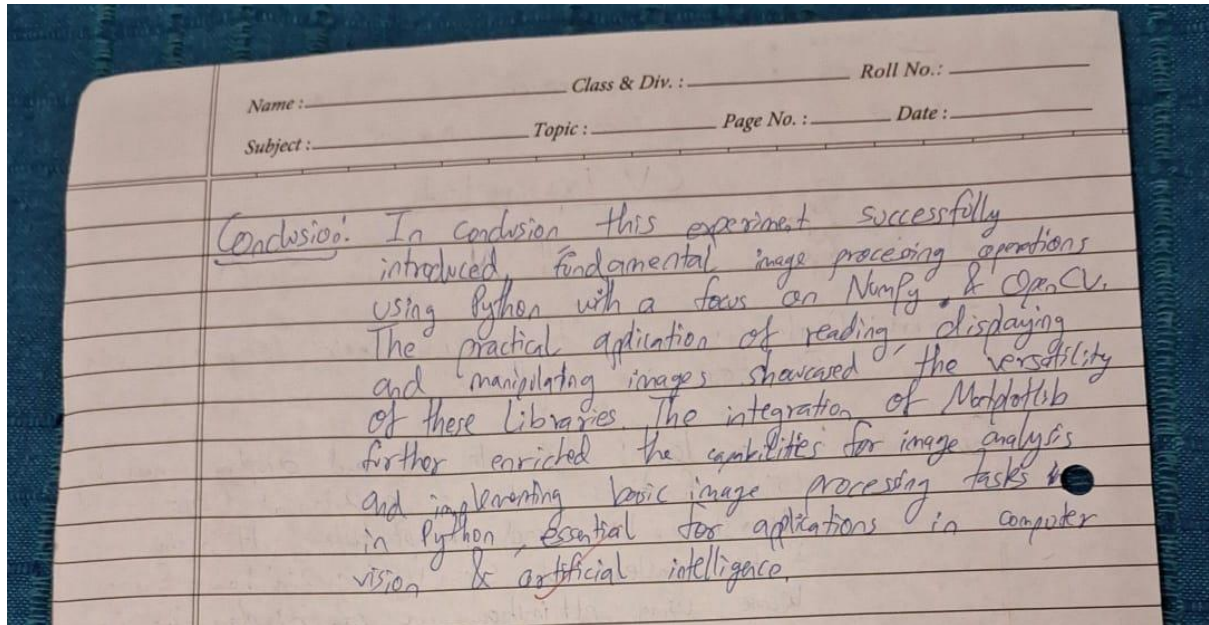 Name : Class & Div. : Roll No.:
Subject : Topic : Page No. : Date :
Conclusion: In conclusion this experiment successfully
introduced, fundamental image processing operations
using Python with a focus on NumPy & OpenCV.
The practical application of reading, displaying
and manipulating images showcased the versatility
of these libraries. The integration of Matplotlib
further enriched the capabilities for image analysis
and implementing basic image processing tasks
in Python, essential for applications in computer
vision & artificial intelligence.